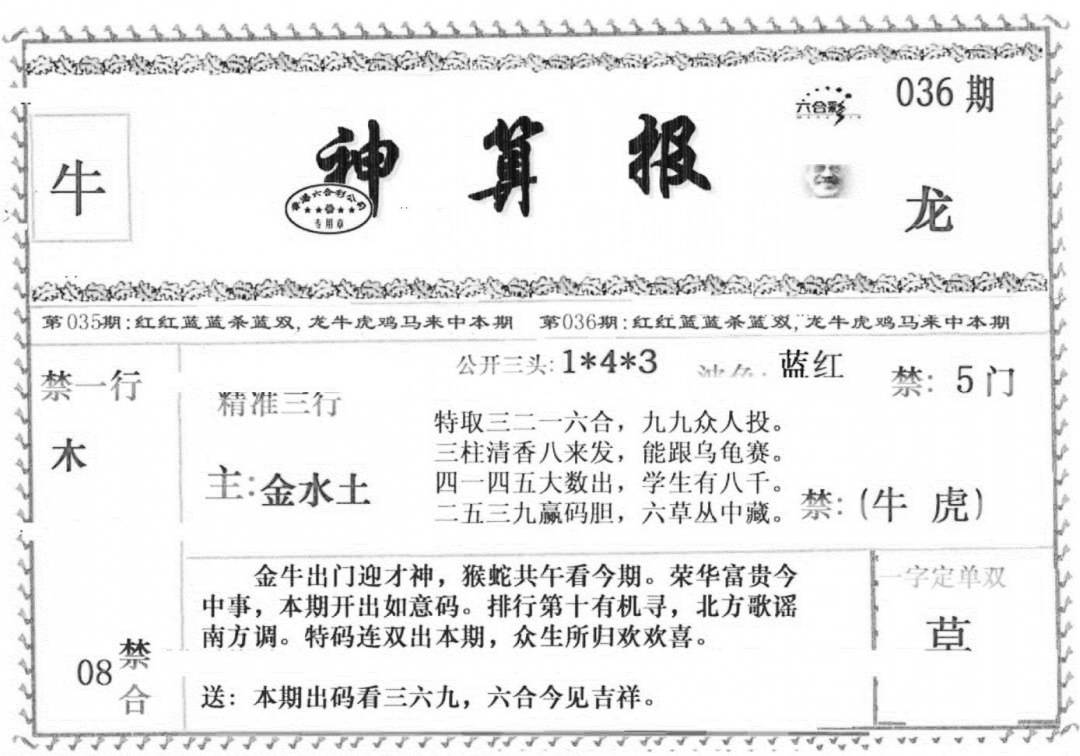 六合彩
036期
牛
神算报
香港六合彩公司
专用章
龙
第035期:红红蓝蓝杀蓝双,龙牛虎鸡马来中本期 第036期:红红蓝蓝杀蓝双,龙牛虎鸡马来中本期
禁一行
木
公开三头:1*4*3
波色:蓝红
禁:5门
精准三行
主:金水土
特取三二一六合，九九众人投。
三柱清香八来发，能跟乌龟赛。
四一四五大数出，学生有八千。
二五三九赢码胆，六草丛中藏。
禁:(牛 虎)
金牛出门迎才神，猴蛇共午看今期。荣华富贵今
中事，本期开出如意码。排行第十有机寻，北方歌谣
南方调。特码连双出本期，众生所归欢欢喜。
一字定单双
草
08禁合
送：本期出码看三六九，六合今见吉祥。